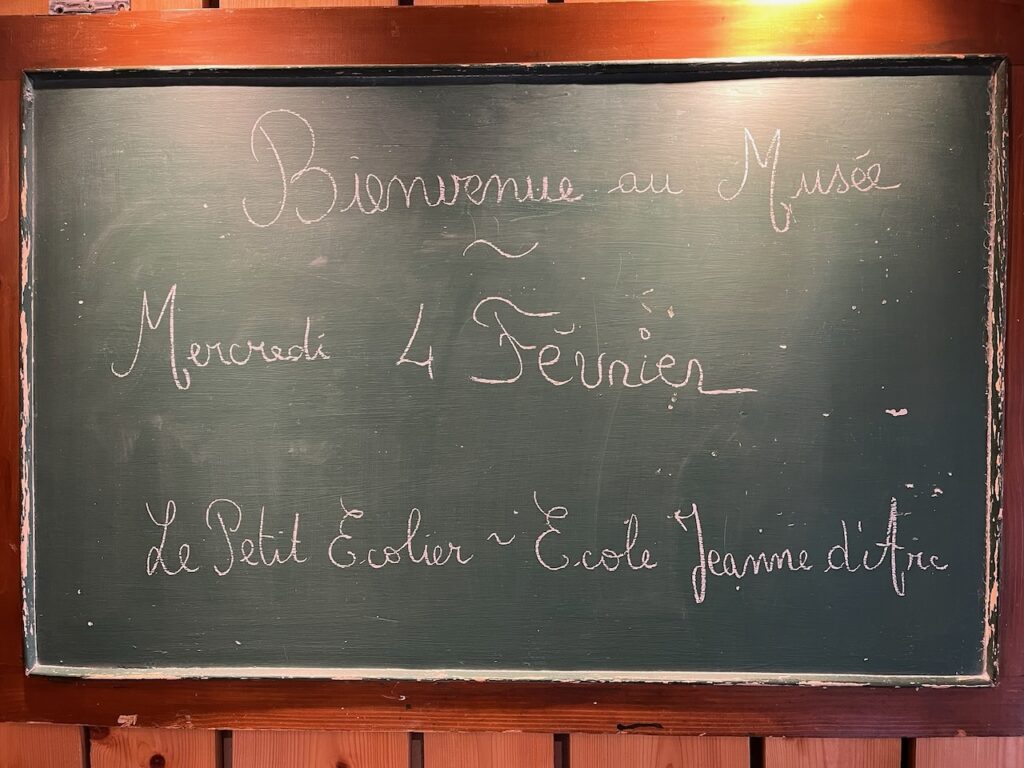 Bienvenue au Musée
~
Mercredi 4 Février
Le Petit Ecolier ~ Ecole Jeanne d'Arc